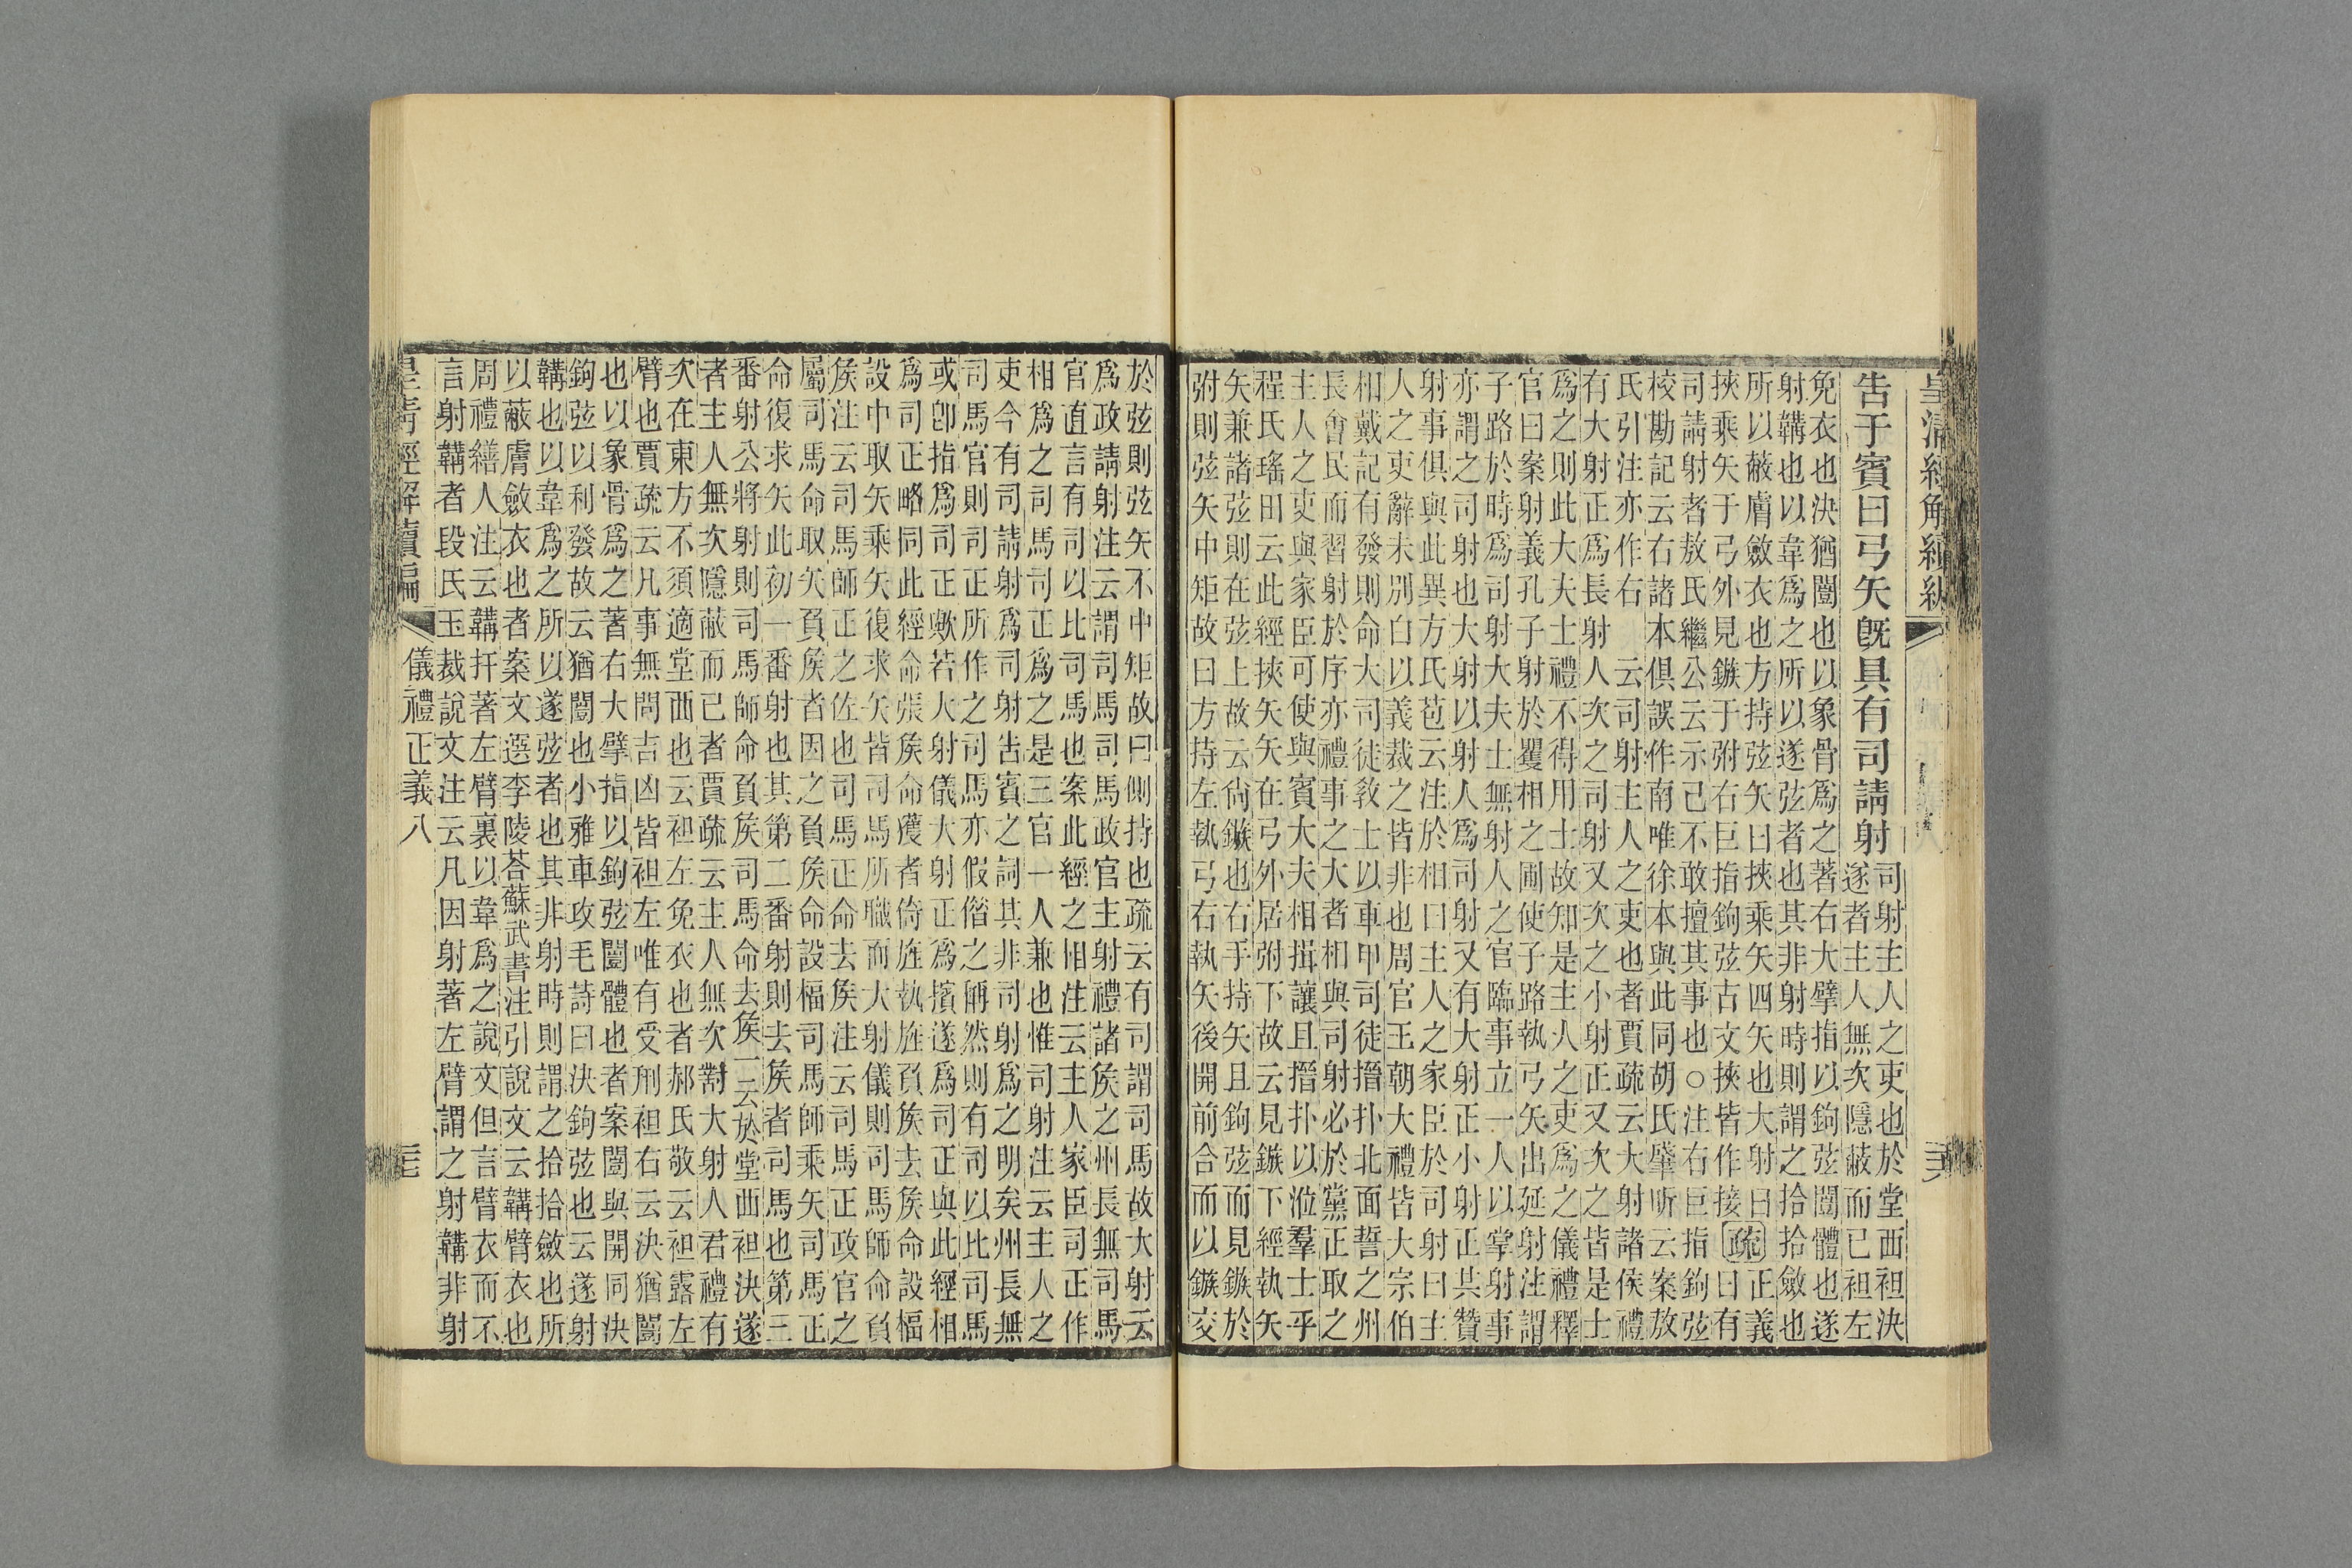 皇清經解續編
告于賓曰弓矢旣具有司請射
司射主人之吏也於堂西袒決
遂者主人無次隱蔽而已袒左
免衣也決猶闓也以象骨爲之著右大擘指以鉤弦闓體也遂
射韝也以韋爲之所以遂弦者也其非射時則謂之拾拾斂也
所以蔽膚斂衣也方持弦矢曰挾乘矢四矢也大射曰
挾乘矢于弓外見鏃于弣右巨指鉤弦古文挾皆作接
疏
正義
曰有
司請射者敖氏繼公云示己不敢擅其事也○注右巨指鉤弦
校勘記云右諸本俱誤作南唯徐本與此同胡氏肇昕云案放
氏引注亦作右 云司射主人之吏也者賈疏云大射諸侯禮
有大射正爲長射人次之司射又次之小射正又次之皆是士
爲之則此大夫士禮不得用士故知是主人之吏爲之儀禮釋
官曰案射義孔子射於矍相之圃使子路執弓矢出延射注謂
子路於時爲司射大夫士無射人之官臨事立一人以掌射事
亦謂之司射也大射以射人爲司射又有大射正小射正共贊
射事俱與此異方氏苞云注於相曰主人之家臣於司射曰主
人之吏辭未別白以義裁之皆非也周官王朝大禮皆大宗伯
相戴記有發則命大司徒敎士以車甲司徒搢扑北面誓之州
長會民而習射於序亦禮事之大者相與司射必於黨正取之
主人之吏與家臣可使與賓大夫相揖讓且搢扑以涖羣士乎
程氏瑤田云此經挾矢矢在弓外居弣下故云見鏃下經執矢
矢兼諸弦則在弦上故云尙鏃也右手持矢且鉤弦而見鏃於
弣則弦矢中矩故曰方持左執弓右執矢後開前合而以鏃交
於弦則弦矢不中矩故曰側持也疏云有司謂司馬故大射云
爲政請射注云謂司馬司馬政官主射禮諸侯之州長無司馬
官直言有司以比司馬也案此經之相注云主人家臣司正作
相爲之司馬司正爲之是三官一人兼也惟司射注云主人之
吏今有司請射爲司射告賓之詞其非司射爲之明矣州長無
司馬官則司正所作之司馬亦假偺之稱然則有司以比司馬
或卽指爲司正歟若大射儀大射正爲擯遂爲司正與此經相
爲司正略同此經命張侯命獲者倚旌執旌負侯去侯命設楅
設中取矢乘矢復求矢皆司馬所職而大射儀則司馬師命負
侯注云司馬師正之佐也司馬正命去侯注云司馬正政官之
屬司馬命取矢負侯者因之負侯命設楅司馬師乘矢司馬正
命復求矢此初一番射也其第二番射則去侯者司馬也第三
番射公將射則司馬師命負侯司馬命去侯一云於堂西袒決遂
者主人無次隱蔽而已者賈疏云主人無次對大射人君禮有
次在東方不須適堂西也云袒左免衣也者郝氏敬云袒露左
臂也賈疏云凡事無問吉凶皆袒左唯有受刑袒右云決猶闓
也以象骨爲之著右大擘指以鉤弦闓體也者案闓與開同決
鉤弦以利發故云猶闓也小雅車攻毛詩曰決鉤弦也云遂射
韝也以韋爲之所以遂弦者也其非射時則謂之拾拾斂也所
以蔽膚斂衣也者案文選李陵荅蘇武書注引說文云韝臂衣也
周禮繕人注云韝扞著左臂裏以韋爲之說文但言臂衣而不
言射韝者段氏玉裁說文注云凡因射著左臂謂之射韝非射
皇清經解續編 儀禮正義八